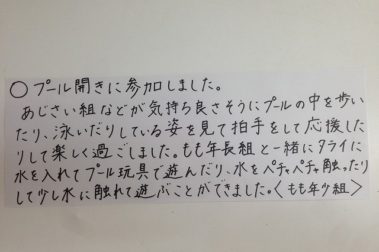 ○プール開きに参加しました。
あじさい組などが気持ち良さそうにプールの中を歩い
たり、泳いだりしている姿を見て拍手をして応援した
りして楽しく過ごしました。もも年長組と一緒にタライに
水を入れてプール玩具で遊んだり、水をペチャペチャ触ったり
して少し水に触れて遊ぶことができました。〈もも年少組〉